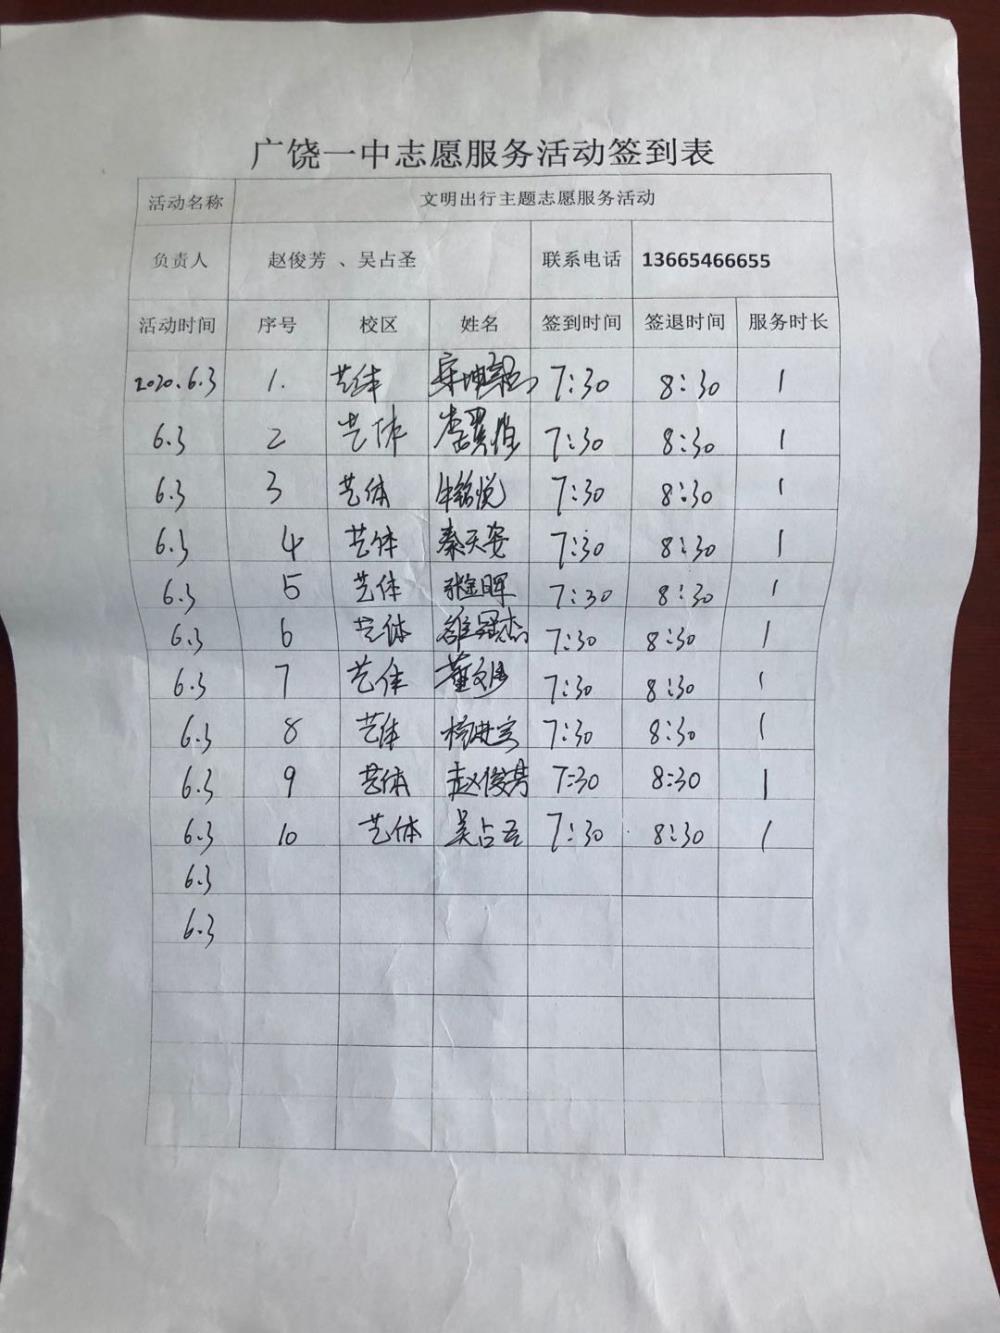 广饶一中志愿服务活动签到表
活动名称 文明出行主题志愿服务活动
负责人 赵俊芳、吴占圣 联系电话 13665466655
活动时间 序号 校区 姓名 签到时间 签退时间 服务时长
2020.6.3 1. 艺体 7:30 8:30 1
6.3 2 艺体 7:30 8:30 1
6.3 3 艺体 牛铭悦 7:30 8:30 1
6.3 4 艺体 秦天姿 7:30 8:30 1
6.3 5 艺体 张金晖 7:30 8:30 1
6.3 6 艺体 7:30 8:30 1
6.3 7 艺体 7:30 8:30 1
6.3 8 艺体 7:30 8:30 1
6.3 9 艺体 赵俊芳 7:30 8:30 1
6.3 10 艺体 吴占圣 7:30 8:30 1
6.3
6.3